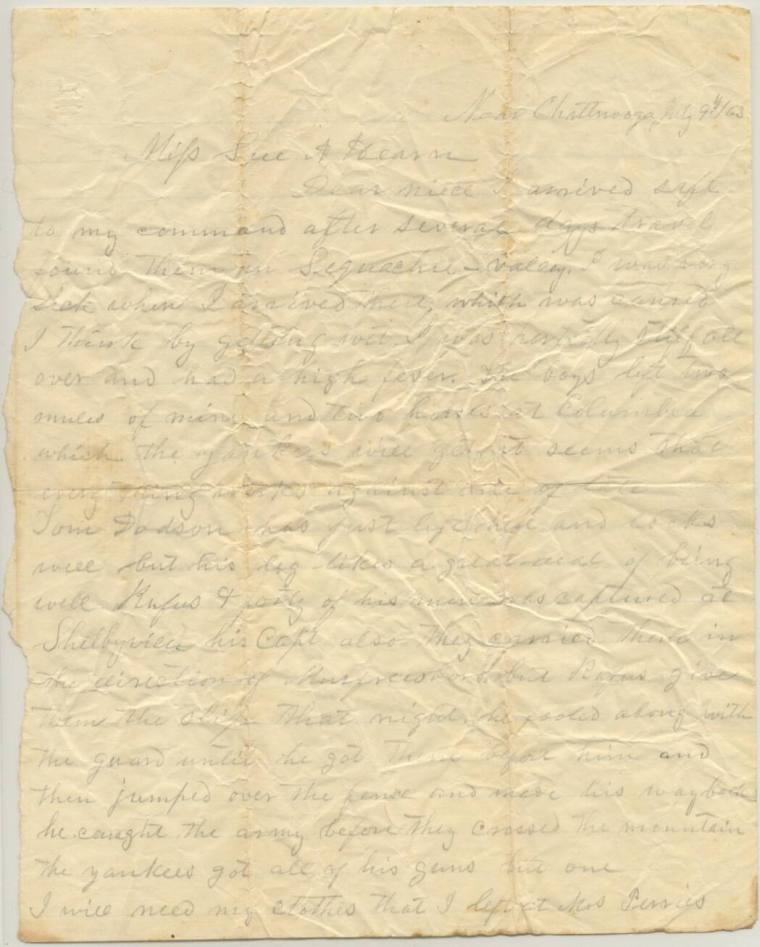 Near Chattnooga, July 9th /63
Miss Sue A Hearn
Dear niece I arrived safe
to my command after several days travel
found them in Sequachie valey. I was very
sick when I arrived here, which was caused
I think by getting wet I was stiff all
over and had a high fever. The boys left two
mules of mine and two horses at Columbia
which the yankees will get it seems that
every thing works against one of late
Tom Dodson has just and looks
well but his leg likes a great deal of being
well Rufus & of his men was captured at
Shelbyville his Capt also They carried them in
the direction of Murfreesboro but Rufus give
them the slip that night. he fooled along with
the guard until he got him and
then jumped over the fence and made his way back
he caught the army before they crossed the mountain
the yankees got all of his guns but one
I will need my clothes that I left at Mrs Perries